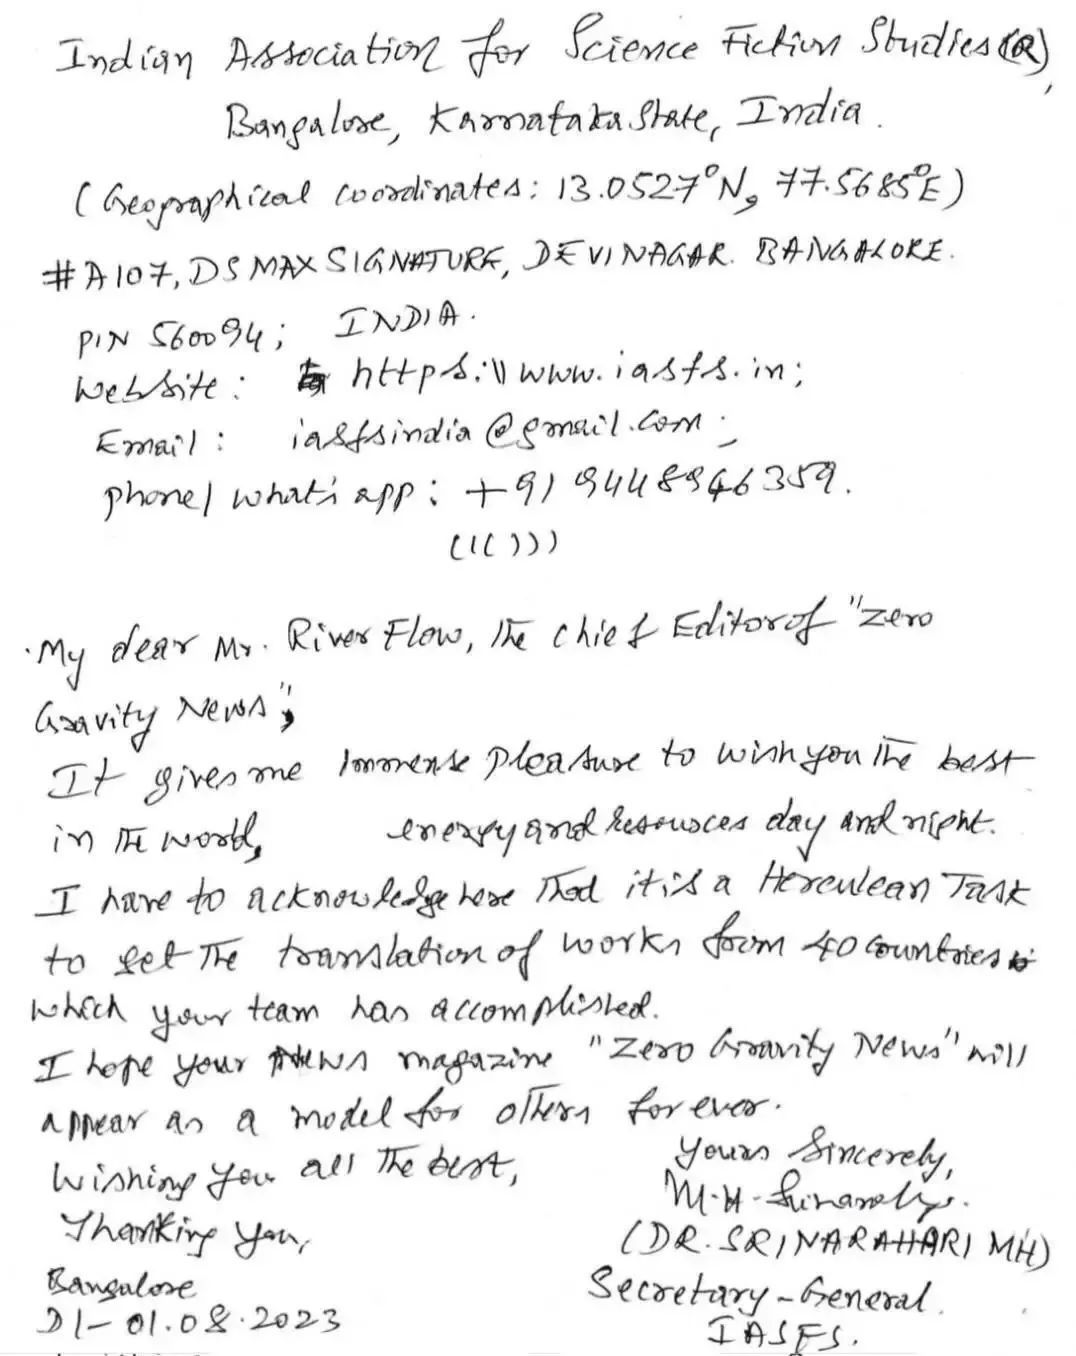 Indian Association for Science Fiction Studies (R),
Bangalore, Karnataka State, India.
(Geographical coordinates: 13.0527°N, 77.5685°E)
#A107, DS MAX SIGNATURE, DEVINAGAR. BANGALORE.
PIN 560094; INDIA.
Website: https:\\www.iasfs.in;
Email: iasfsindia@gmail.com;
phone/what's app: +91 9448946359.
(((())))
My dear Mr. River Flow, the chief Editor of "Zero
Gravity News",
It gives me immense pleasure to wish you the best
in the world, energy and resources day and night.
I have to acknowledge here that it is a Herculean Task
to get the translation of works from 40 countries
which your team has accomplished.
I hope your news magazine "Zero Gravity News" will
appear as a model for others for ever.
Wishing you all the best,
Yours Sincerely,
Thanking you,
(DR. SRINARAHARI MH)
Bangalore
Secretary-General.
Dt-01.08.2023
IASFS.